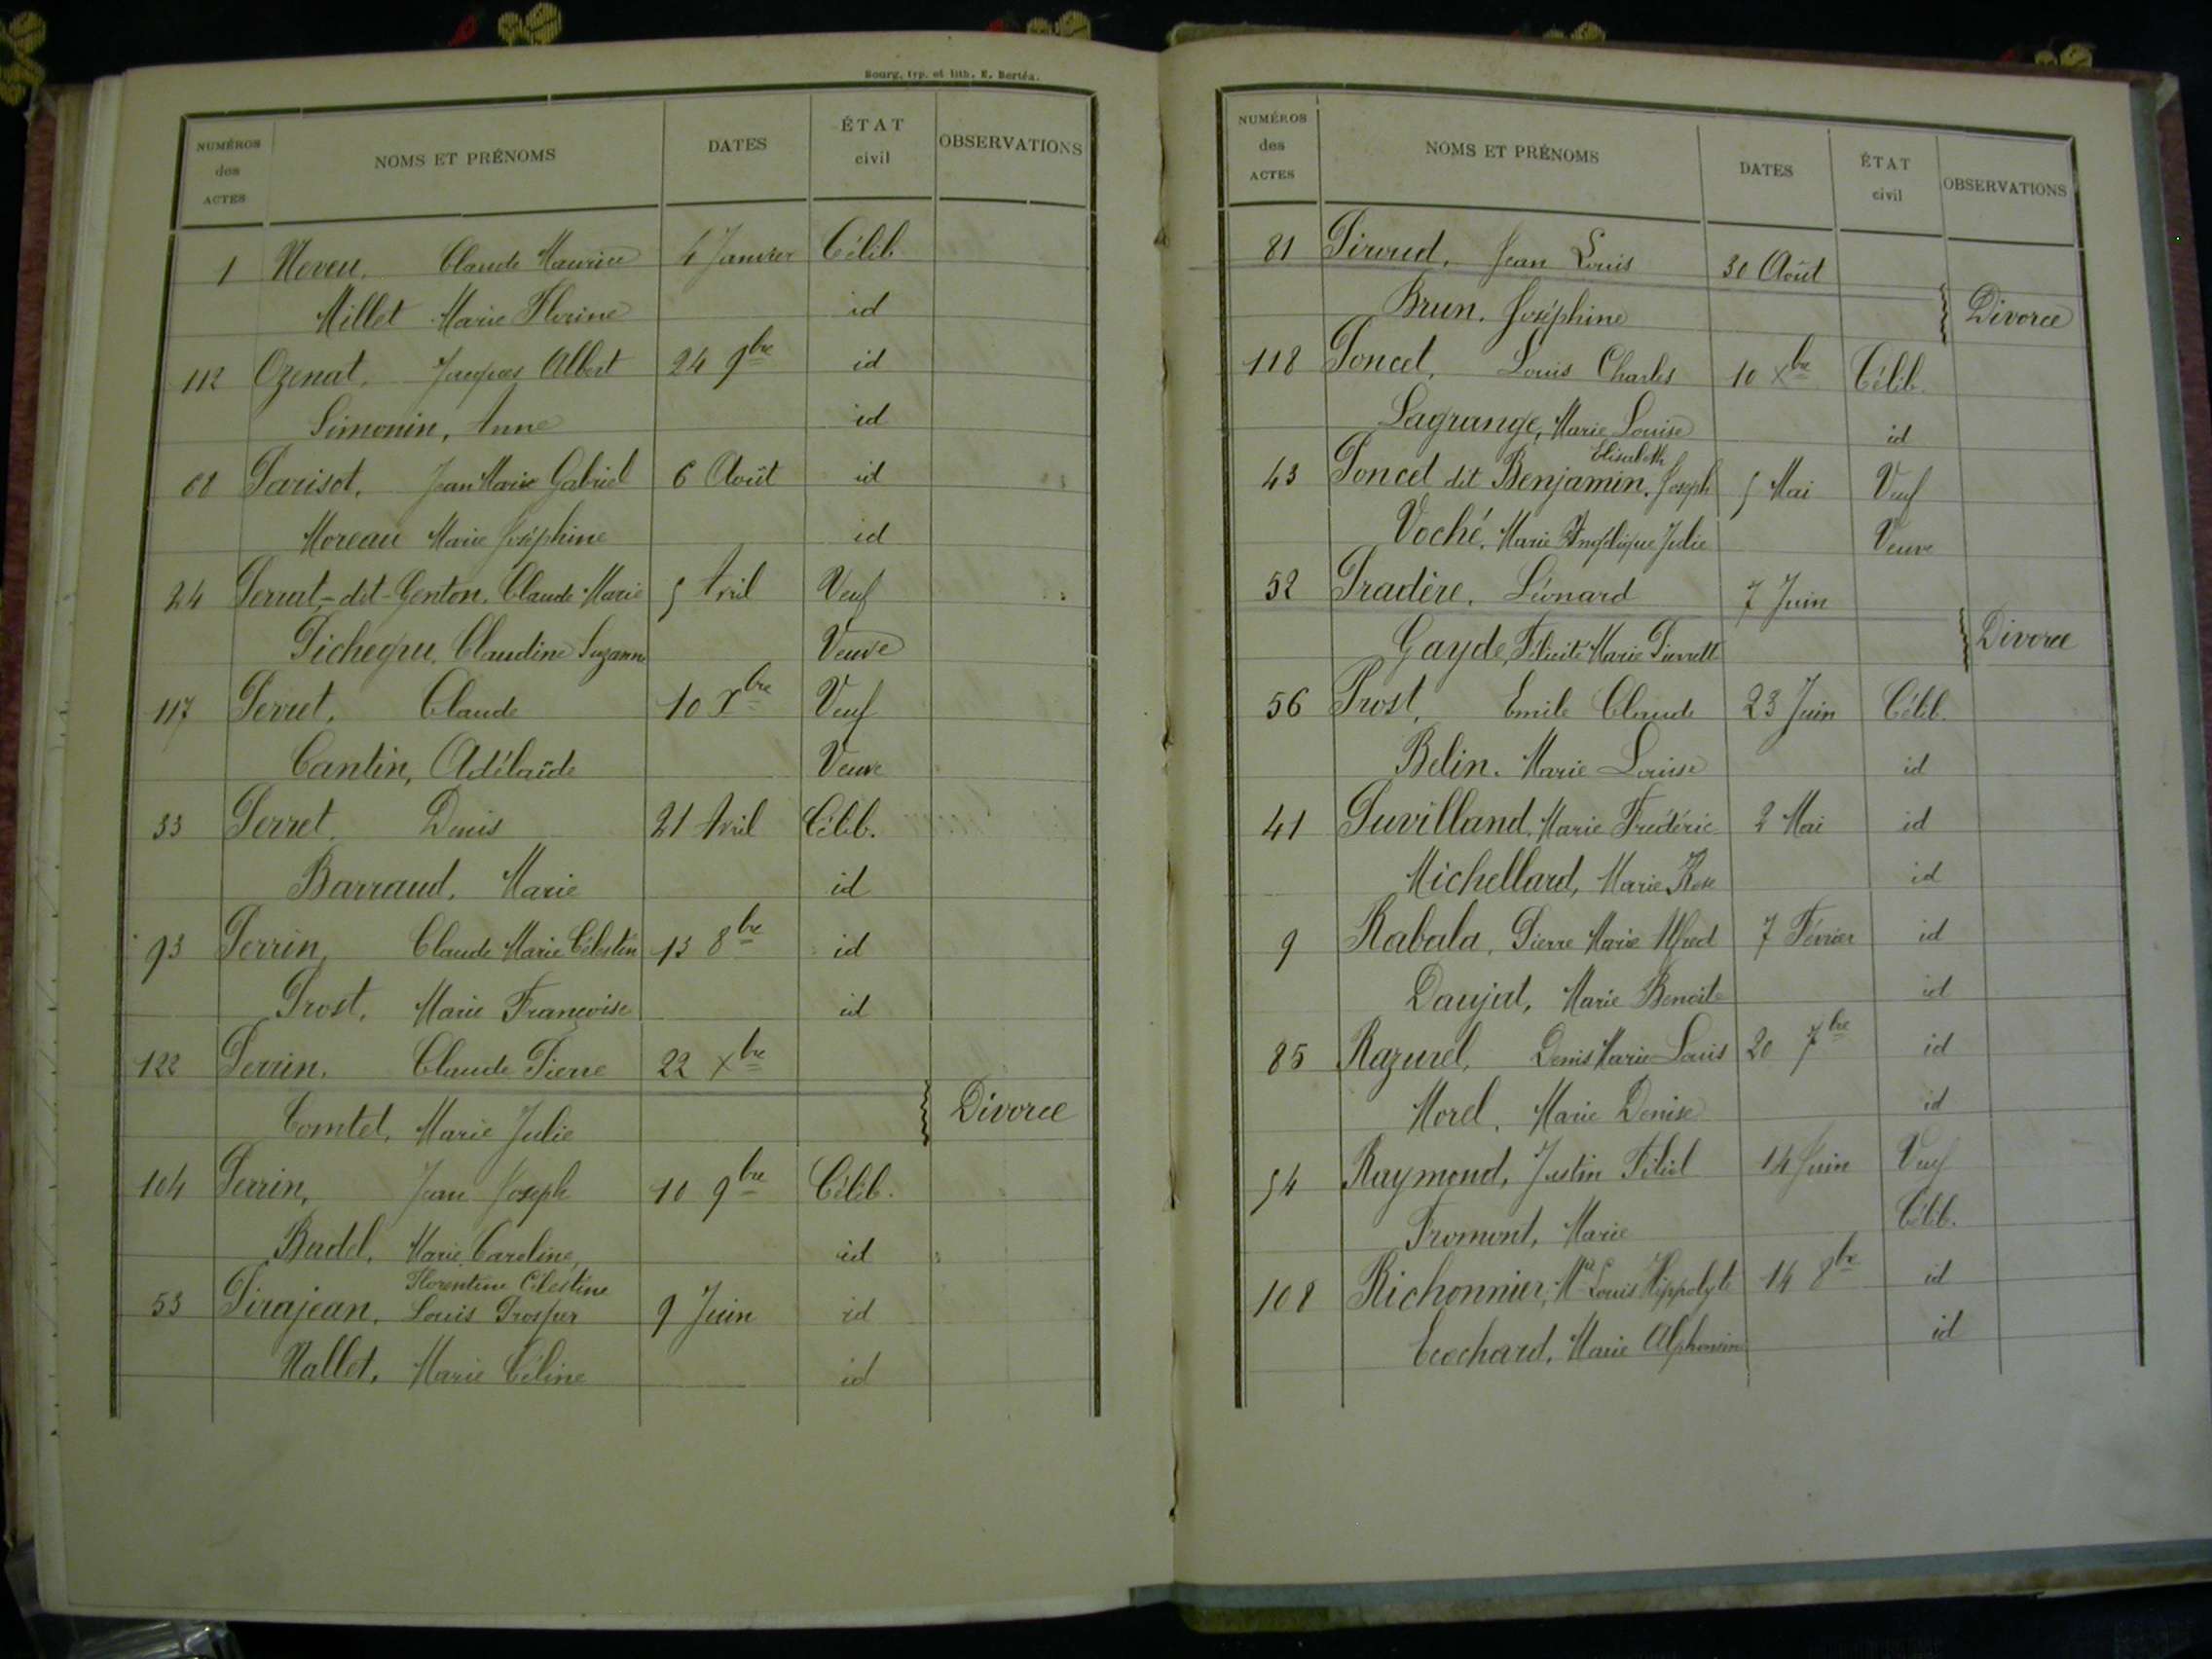 Bourg, typ. et lith. E. Bertéa.
NUMÉROS des ACTES NOMS ET PRÉNOMS DATES ÉTAT civil OBSERVATIONS
1 Neveu, Claude Maurice 4 Janvier Célib.
Millet Marie Florine id
112 Ozenat, Jacques Albert 24 9bre id
Simonin, Anne id
68 Parisot, Jean Marie Gabriel 6 Août id
Moreau Marie Joséphine id
24 Perrat-dit-Genton, Claude Marie 5 Avril Veuf
Pichegru, Claudine Suzanne Veuve
117 Perret, Claude 10 Xbre Veuf
Cantin, Adélaïde Veuve
33 Perret, Denis 21 Avril Célib.
Barraud, Marie id
93 Perrin, Claude Marie Célestin 13 8bre id
Prost, Marie Françoise id
122 Perrin, Claude Pierre 22 Xbre
Comtet, Marie Julie Divorce
104 Perrin, Jean Joseph 10 9bre Célib.
Badel, Marie Caroline, id
Florentine Célestine
53 Pirajean, Louis Prosper 9 Juin id
Nallet, Marie Céline id
NUMÉROS des ACTES NOMS ET PRÉNOMS DATES ÉTAT civil OBSERVATIONS
81 Piroud, Jean Louis 30 Août
Brun, Joséphine Divorce
118 Poncet, Louis Charles 10 Xbre Célib.
Lagrange, Marie Louise id
Elisabeth
43 Poncet dit Benjamin, Joseph 5 Mai Veuf
Voché, Marie Angélique Julie Veuve
52 Pradère, Léonard 7 Juin
Gayde, Félicité Marie Pierrette Divorce
56 Prost, Emile Claude 23 Juin Célib.
Belin, Marie Louise id
41 Puvilland, Marie Frédéric 2 Mai id
Michellard, Marie Rose id
9 Rabala, Pierre Marie Alfred 7 Février id
Daujat, Marie Benoite id
85 Razurel, Denis Marie Louis 20 7bre id
Morel, Marie Denise id
54 Raymond, Justin Filiol 14 Juin Veuf
Fromont, Marie Célib.
108 Richonnier, Mie Louis Hippolyte 14 8bre id
Ecochard, Marie Alphonsine id